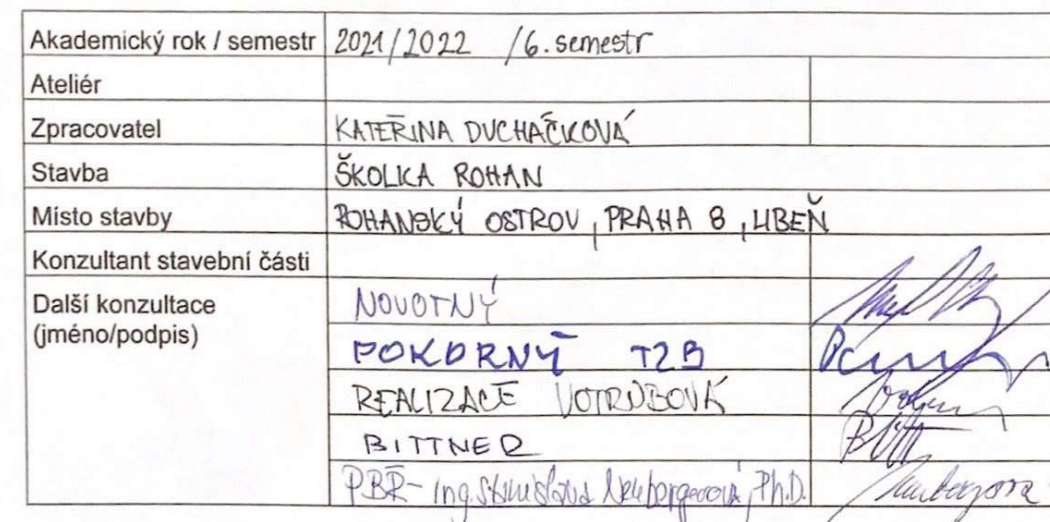 Akademický rok / semestr 2021/2022 /6. semestr
Ateliér
Zpracovatel KATEŘINA DUCHAČKOVÁ
Stavba ŠKOLKA ROHAN
Místo stavby ROHANSKÝ OSTROV, PRAHA 8, LIBEŇ
Konzultant stavební části
Další konzultace NOVOTNÝ
(jméno/podpis)
POKORNÝ TZB
REALIZACE VOTRUBOVÁ
BITTNER
PBŘ- Ing. Stanislava Neubergerová, Ph.D.